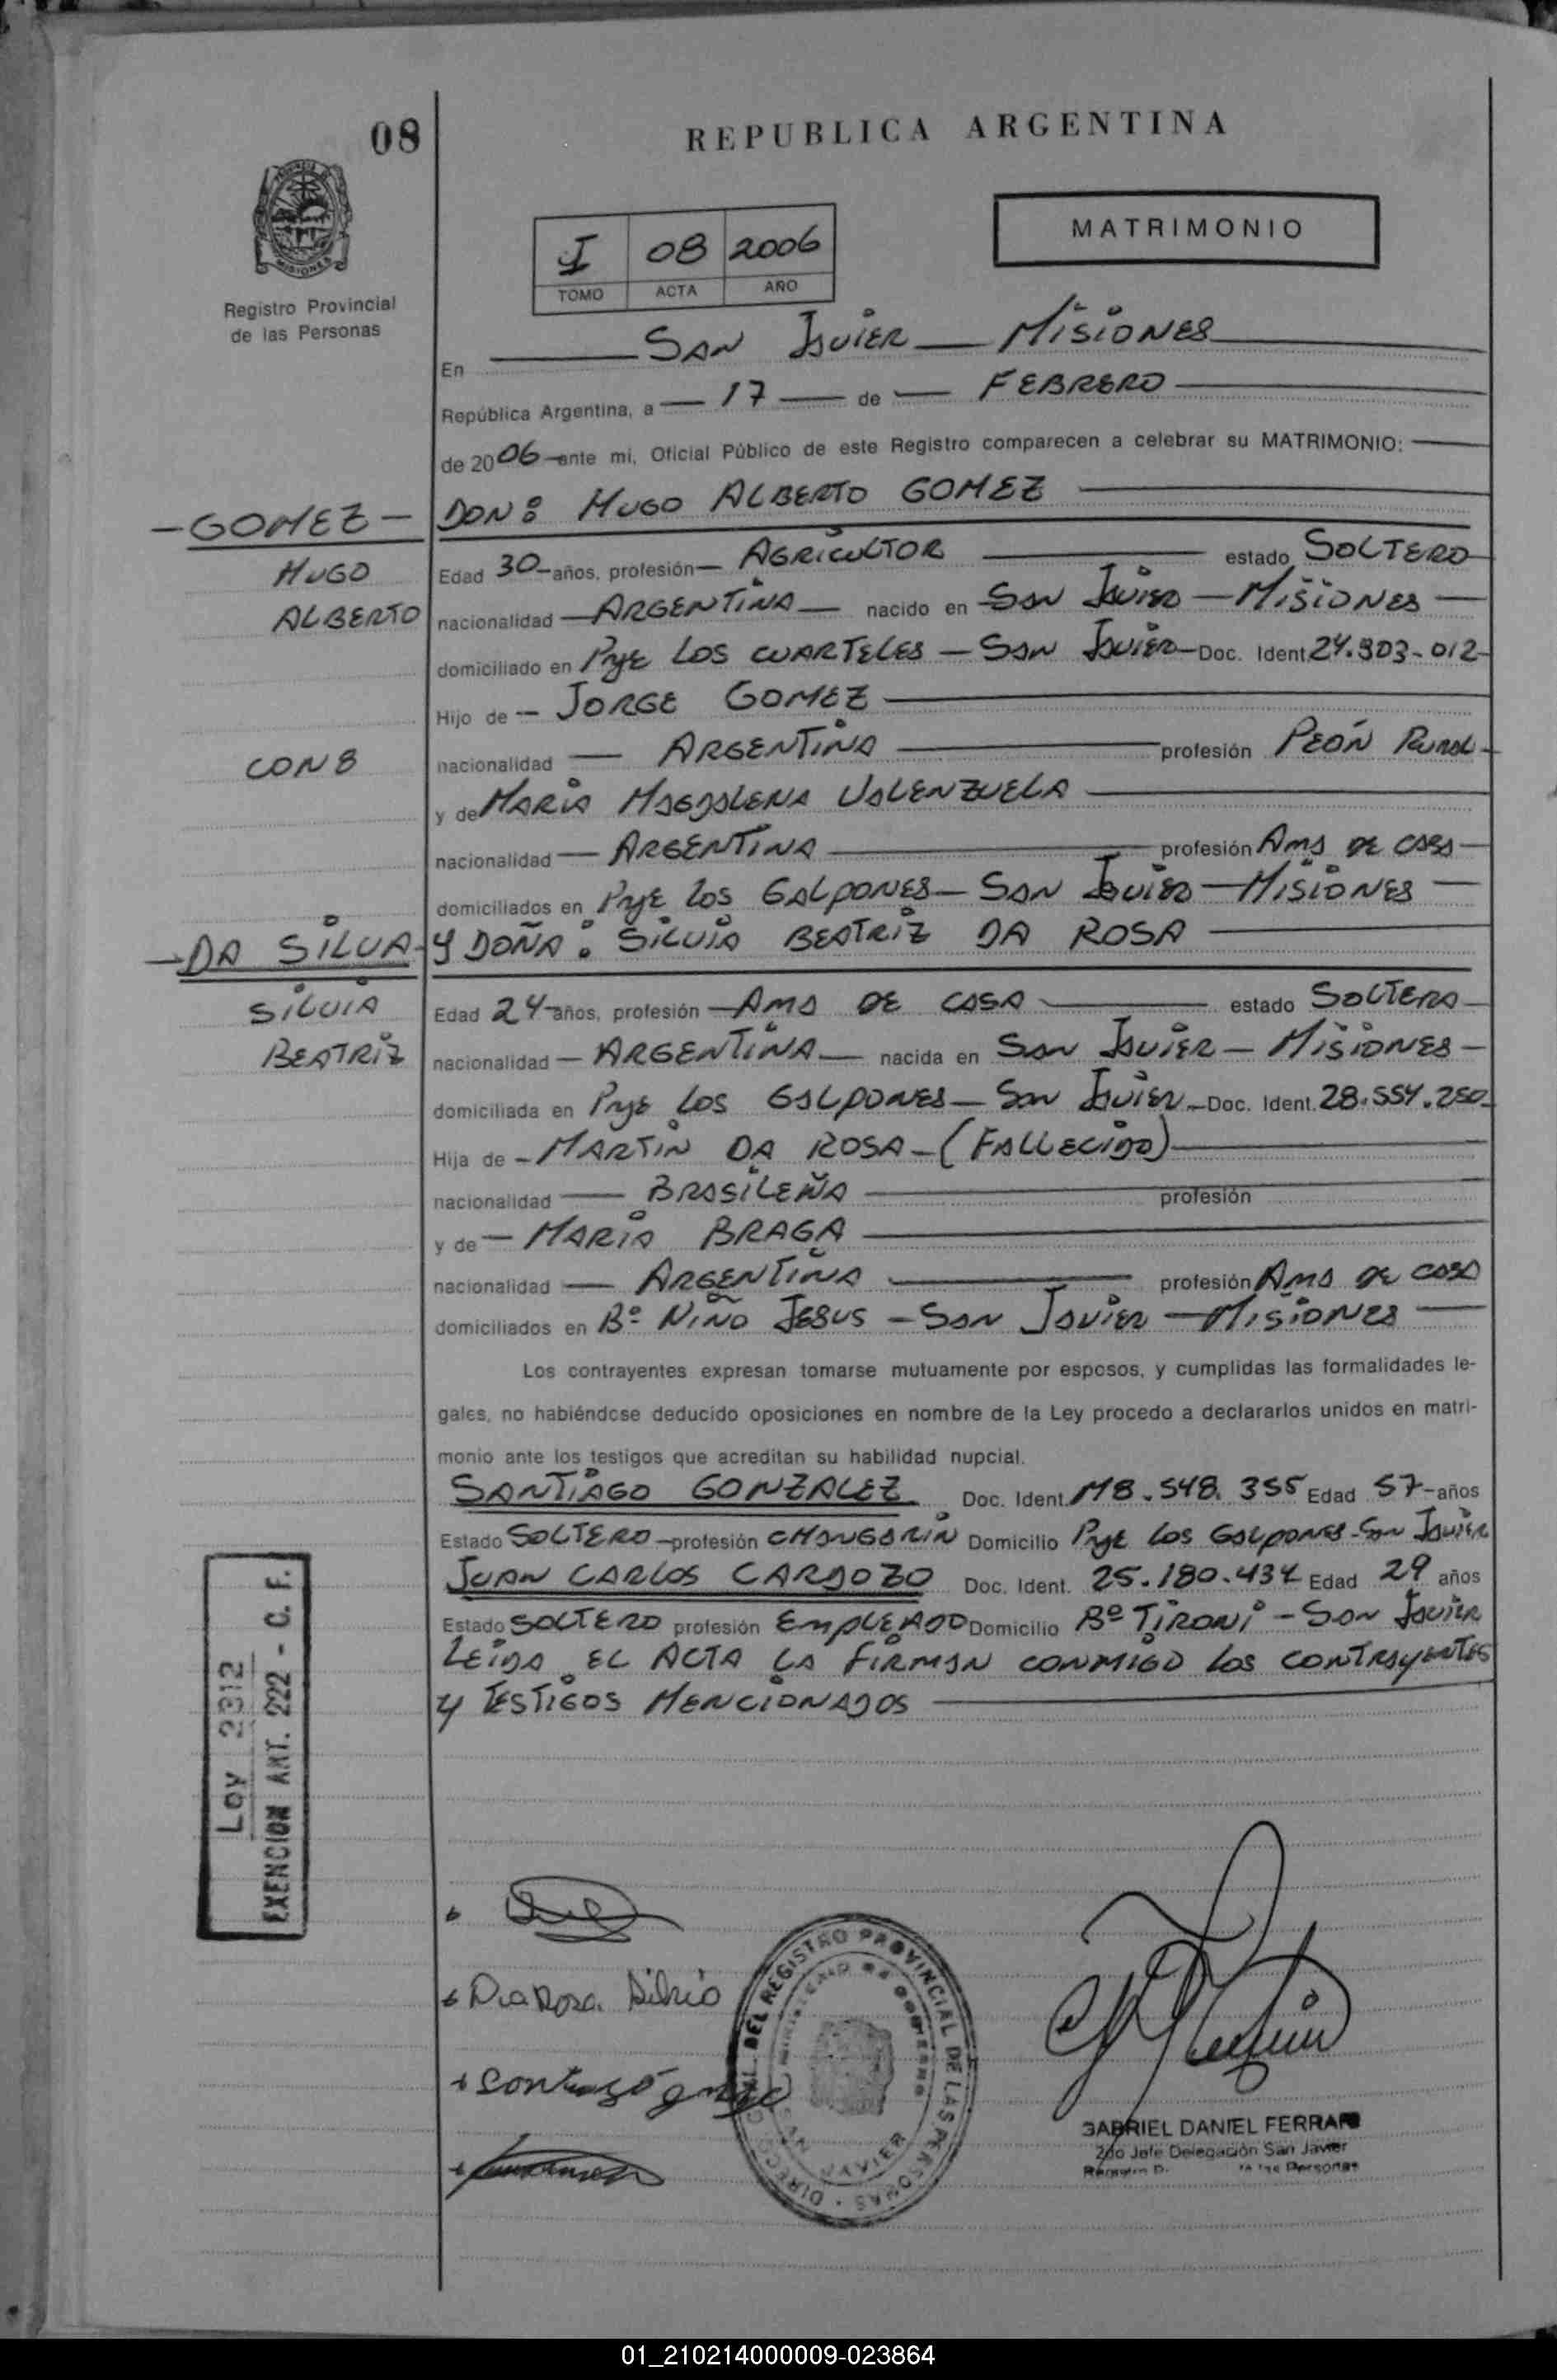 08
REPUBLICA ARGENTINA
MATRIMONIO
I 08 2006
TOMO ACTA AÑO
MISIONES
Registro Provincial
de las Personas
En SAN JAVIER MISIONES
República Argentina, a 17 de FEBRERO
de 2006 ante mi, Oficial Público de este Registro comparecen a celebrar su MATRIMONIO:
- GOMEZ - DON: HUGO ALBERTO GOMEZ
HUGO Edad 30 años, profesión AGRICULTOR estado SOLTERO
ALBERTO nacionalidad ARGENTINA nacido en SAN JAVIER - MISIONES
domiciliado en Pje LOS CUARTELES - SAN JAVIER Doc. Ident. 24.903.012
Hijo de JORGE GOMEZ
CON: nacionalidad ARGENTINA profesión PEÓN RURAL
y de MARIA MAGDALENA VALENZUELA
nacionalidad ARGENTINA profesión AMA DE CASA
domiciliados en Pje LOS GALPONES - SAN JAVIER - MISIONES
- DA SILVA - Y DOÑA: SILVIA BEATRIZ DA ROSA
SILVIA Edad 24 años, profesión AMA DE CASA estado SOLTERA
BEATRIZ nacionalidad ARGENTINA nacida en SAN JAVIER - MISIONES
domiciliada en Pje LOS GALPONES - SAN JAVIER Doc. Ident. 28.554.250
Hija de MARTIN DA ROSA - (FALLECIDO)
nacionalidad BRASILEÑA profesión
y de MARIA BRAGA
nacionalidad ARGENTINA profesión AMA DE CASA
domiciliados en Bº NIÑO JESUS - SAN JAVIER - MISIONES
Los contrayentes expresan tomarse mutuamente por esposos, y cumplidas las formalidades le-
gales, no habiéndose deducido oposiciones en nombre de la Ley procedo a declararlos unidos en matri-
monio ante los testigos que acreditan su habilidad nupcial.
SANTIAGO GONZALEZ Doc. Ident. M8.548.355 Edad 57 años
Estado SOLTERO profesión CHANGARIN Domicilio Pje LOS GALPONES - SAN JAVIER
JUAN CARLOS CARDOZO Doc. Ident. 25.180.434 Edad 29 años
Estado SOLTERO profesión EMPLEADO Domicilio Bº TIRONI - SAN JAVIER
LEIDA EL ACTA LA FIRMAN CONMIGO LOS CONTRAYENTES
Y TESTIGOS MENCIONADOS
Ley 2312
EXENCION ANT. 222 - C. F.
Da Rosa Silvia
DEL REGISTRO PROVINCIAL DE LAS PERSONAS
SAN JAVIER
GABRIEL DANIEL FERRARI
2do Jefe Delegación San Javier
las Personas
01_210214000009-023864